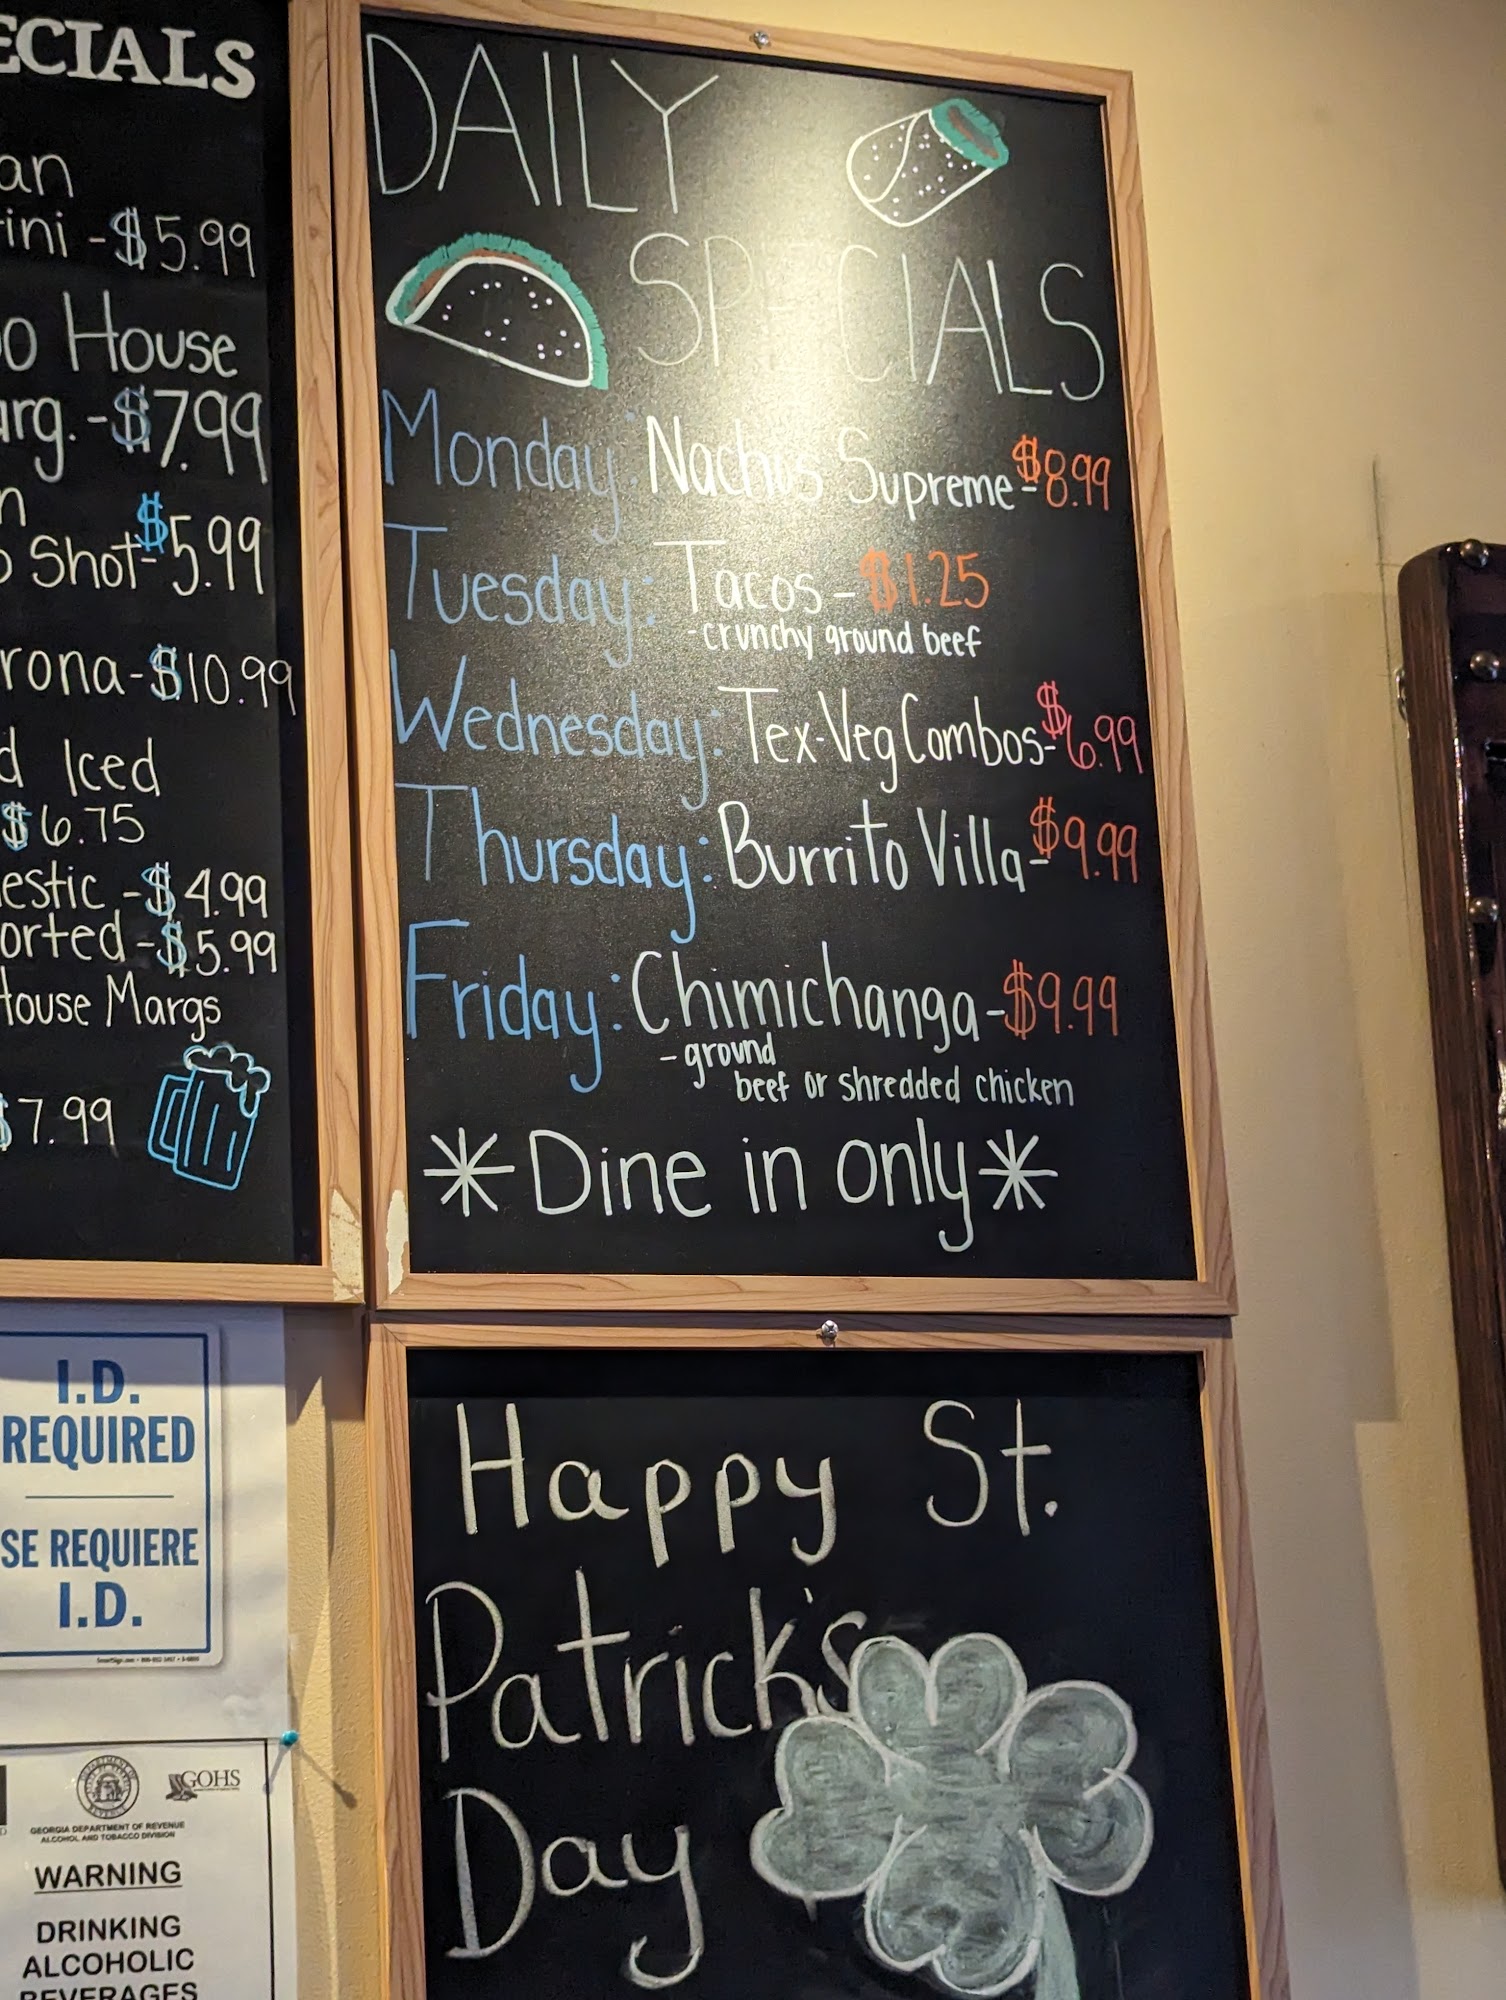 ECIALS
an
ini - $5.99
o House
arg. - $7.99
n
o Shot - $5.99
rona - $10.99
d Iced
$6.75
estic - $4.99
orted - $5.99
House Margs
$7.99
DAILY
SPECIALS
Monday: Nachos Supreme - $8.99
Tuesday: Tacos - $1.25
- crunchy ground beef
Wednesday: Tex-Veg Combos - $6.99
Thursday: Burrito Villa - $9.99
Friday: Chimichanga - $9.99
- ground
beef or shredded chicken
* Dine in only *
Happy St.
Patrick's
Day
I.D.
REQUIRED
SE REQUIERE
I.D.
GOHS
GEORGIA DEPARTMENT OF REVENUE
ALCOHOL AND TOBACCO DIVISION
WARNING
DRINKING
ALCOHOLIC
BEVERAGES